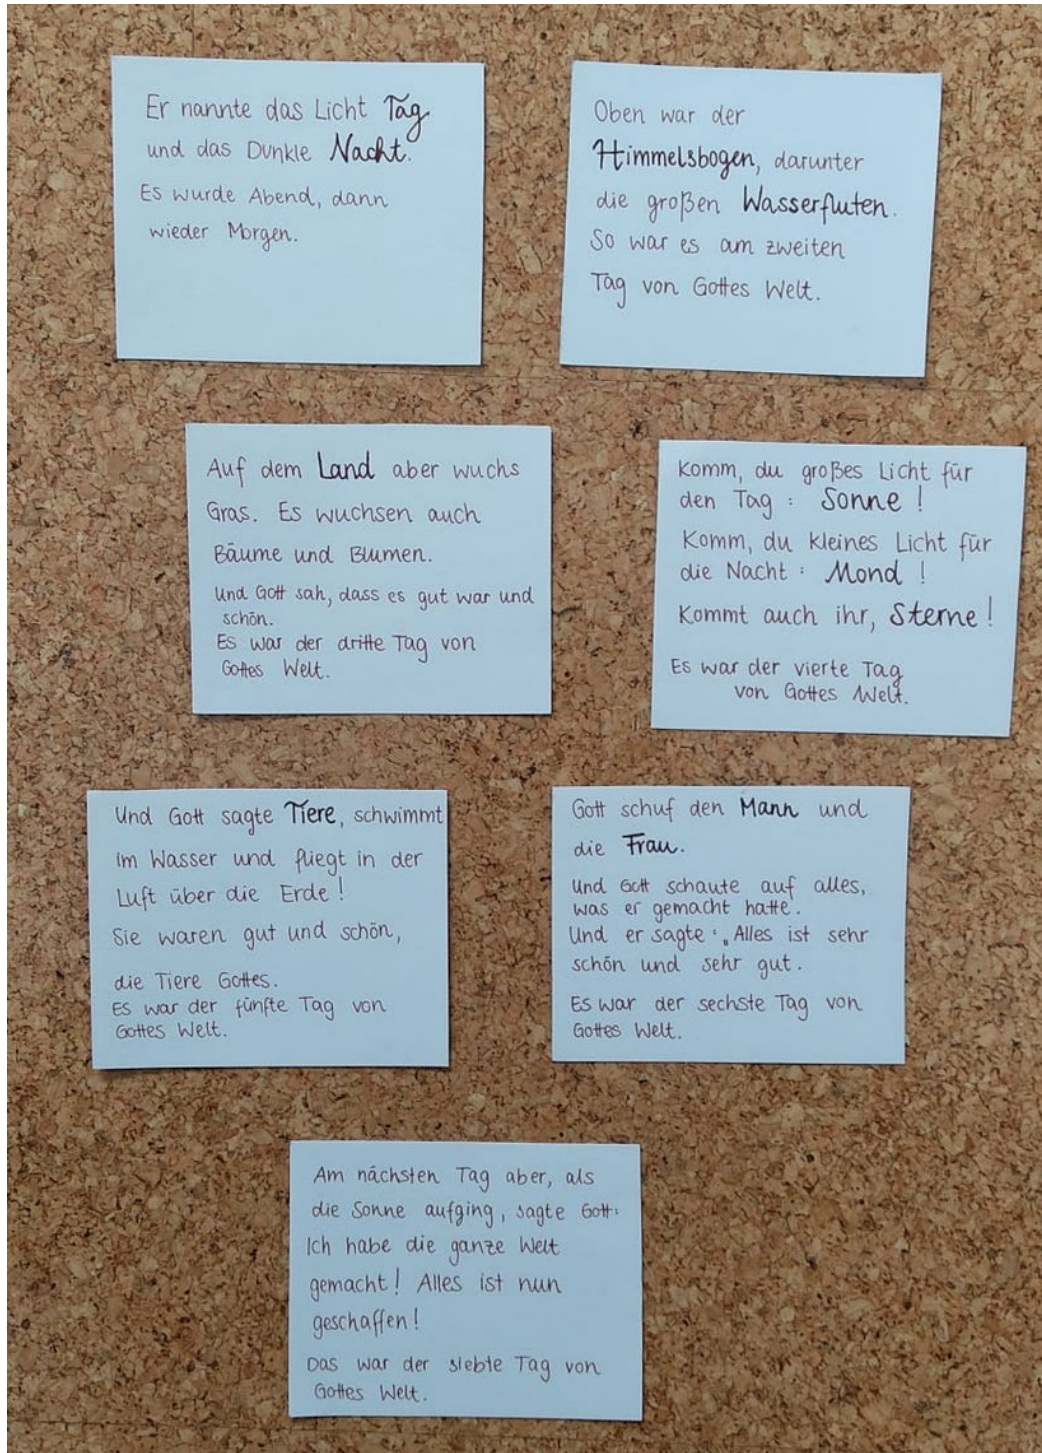 Er nannte das Licht Tag
und das Dunkle Nacht.
Es wurde Abend, dann
wieder Morgen.
Oben war der
Himmelsbogen, darunter
die großen Wasserfluten.
So war es am zweiten
Tag von Gottes Welt.
Auf dem Land aber wuchs
Gras. Es wuchsen auch
Bäume und Blumen.
Und Gott sah, dass es gut war und
schön.
Es war der dritte Tag von
Gottes Welt.
Komm, du großes Licht für
den Tag: Sonne!
Komm, du kleines Licht für
die Nacht: Mond!
Kommt auch ihr, Sterne!
Es war der vierte Tag
von Gottes Welt.
Und Gott sagte Tiere, schwimmt
im Wasser und fliegt in der
Luft über die Erde!
Sie waren gut und schön,
die Tiere Gottes.
Es war der fünfte Tag von
Gottes Welt.
Gott schuf den Mann und
die Frau.
Und Gott schaute auf alles,
was er gemacht hatte.
Und er sagte: „Alles ist sehr
schön und sehr gut.
Es war der sechste Tag von
Gottes Welt.
Am nächsten Tag aber, als
die Sonne aufging, sagte Gott:
Ich habe die ganze Welt
gemacht! Alles ist nun
geschaffen!
Das war der siebte Tag von
Gottes Welt.